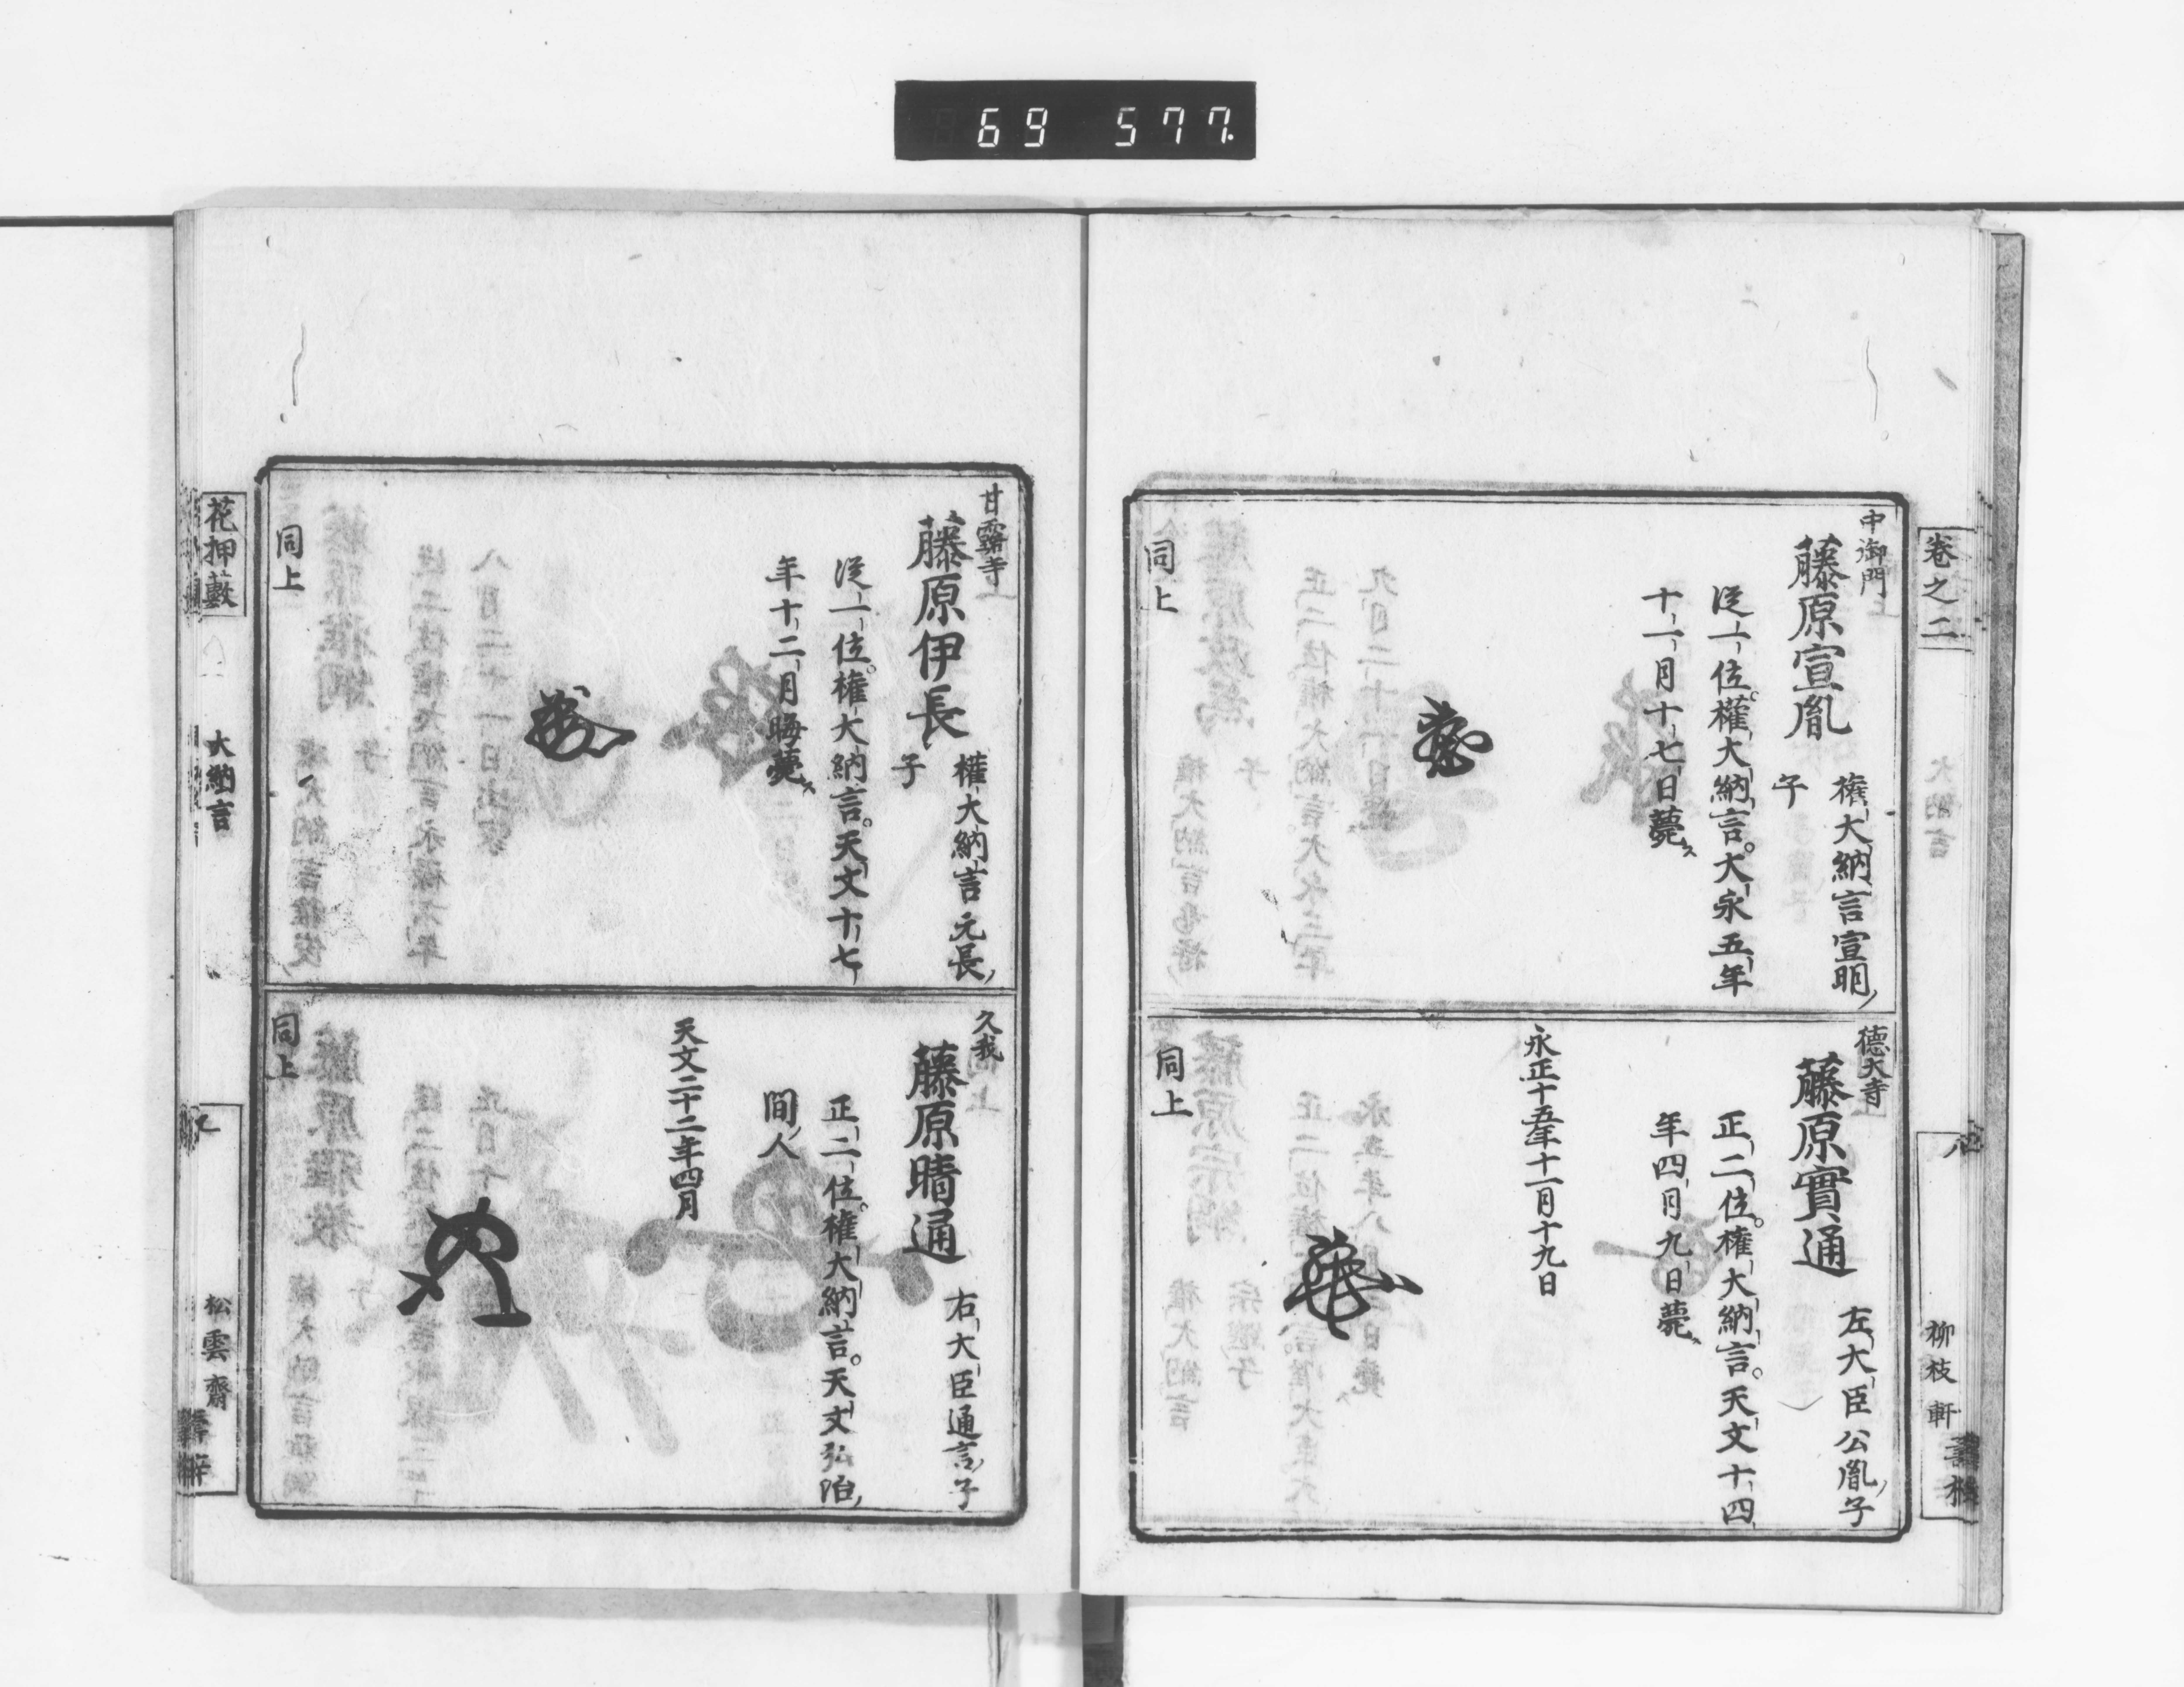 69 577.
卷之二
柳枝軒
中御門
藤原宣胤
權大納言宣明
子
従一位。權大納言。大永五年
十一月十七日薨ス
同上
德大寺
藤原實通
左大臣公胤子
正二位。權大納言。天文十四
年四月九日薨ス
永正十五年十一月十九日
同上
甘露寺
藤原伊長
權大納言元長
子
従一位。權大納言。天文十七
年十二月晦薨ス
同上
久我
藤原晴通
右大臣通言子
正二位。權大納言。天文弘治
間人
天文二十二年四月
同上
花押藪
大納言
松雲齋